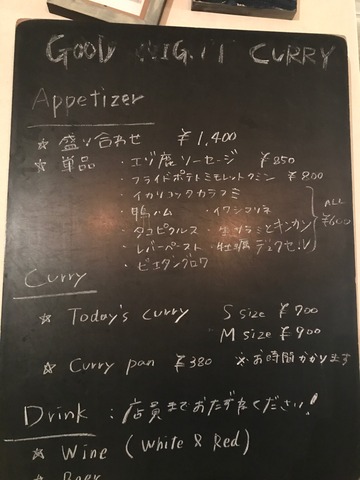 GOOD NIGHT CURRY
Appetizer
☆ 盛り合わせ ¥1,400
☆ 単品 ・エゾ鹿ソーセージ ¥850
・フライドポテトミモレットクミン ¥800
・イカリコッタカラスミ
・鴨ハム ・イワシマリネ
・タコピクルス ・生ハムとキンカン
・レバーペースト ・牡蠣デュクセル
・ピエタングロワ
ALL ¥600
Curry
☆ Today's curry S size ¥700
M size ¥900
☆ Curry pan ¥380 ※お時間かかります
Drink : 店員までおたずねください!
☆ Wine (White & Red)
Beer